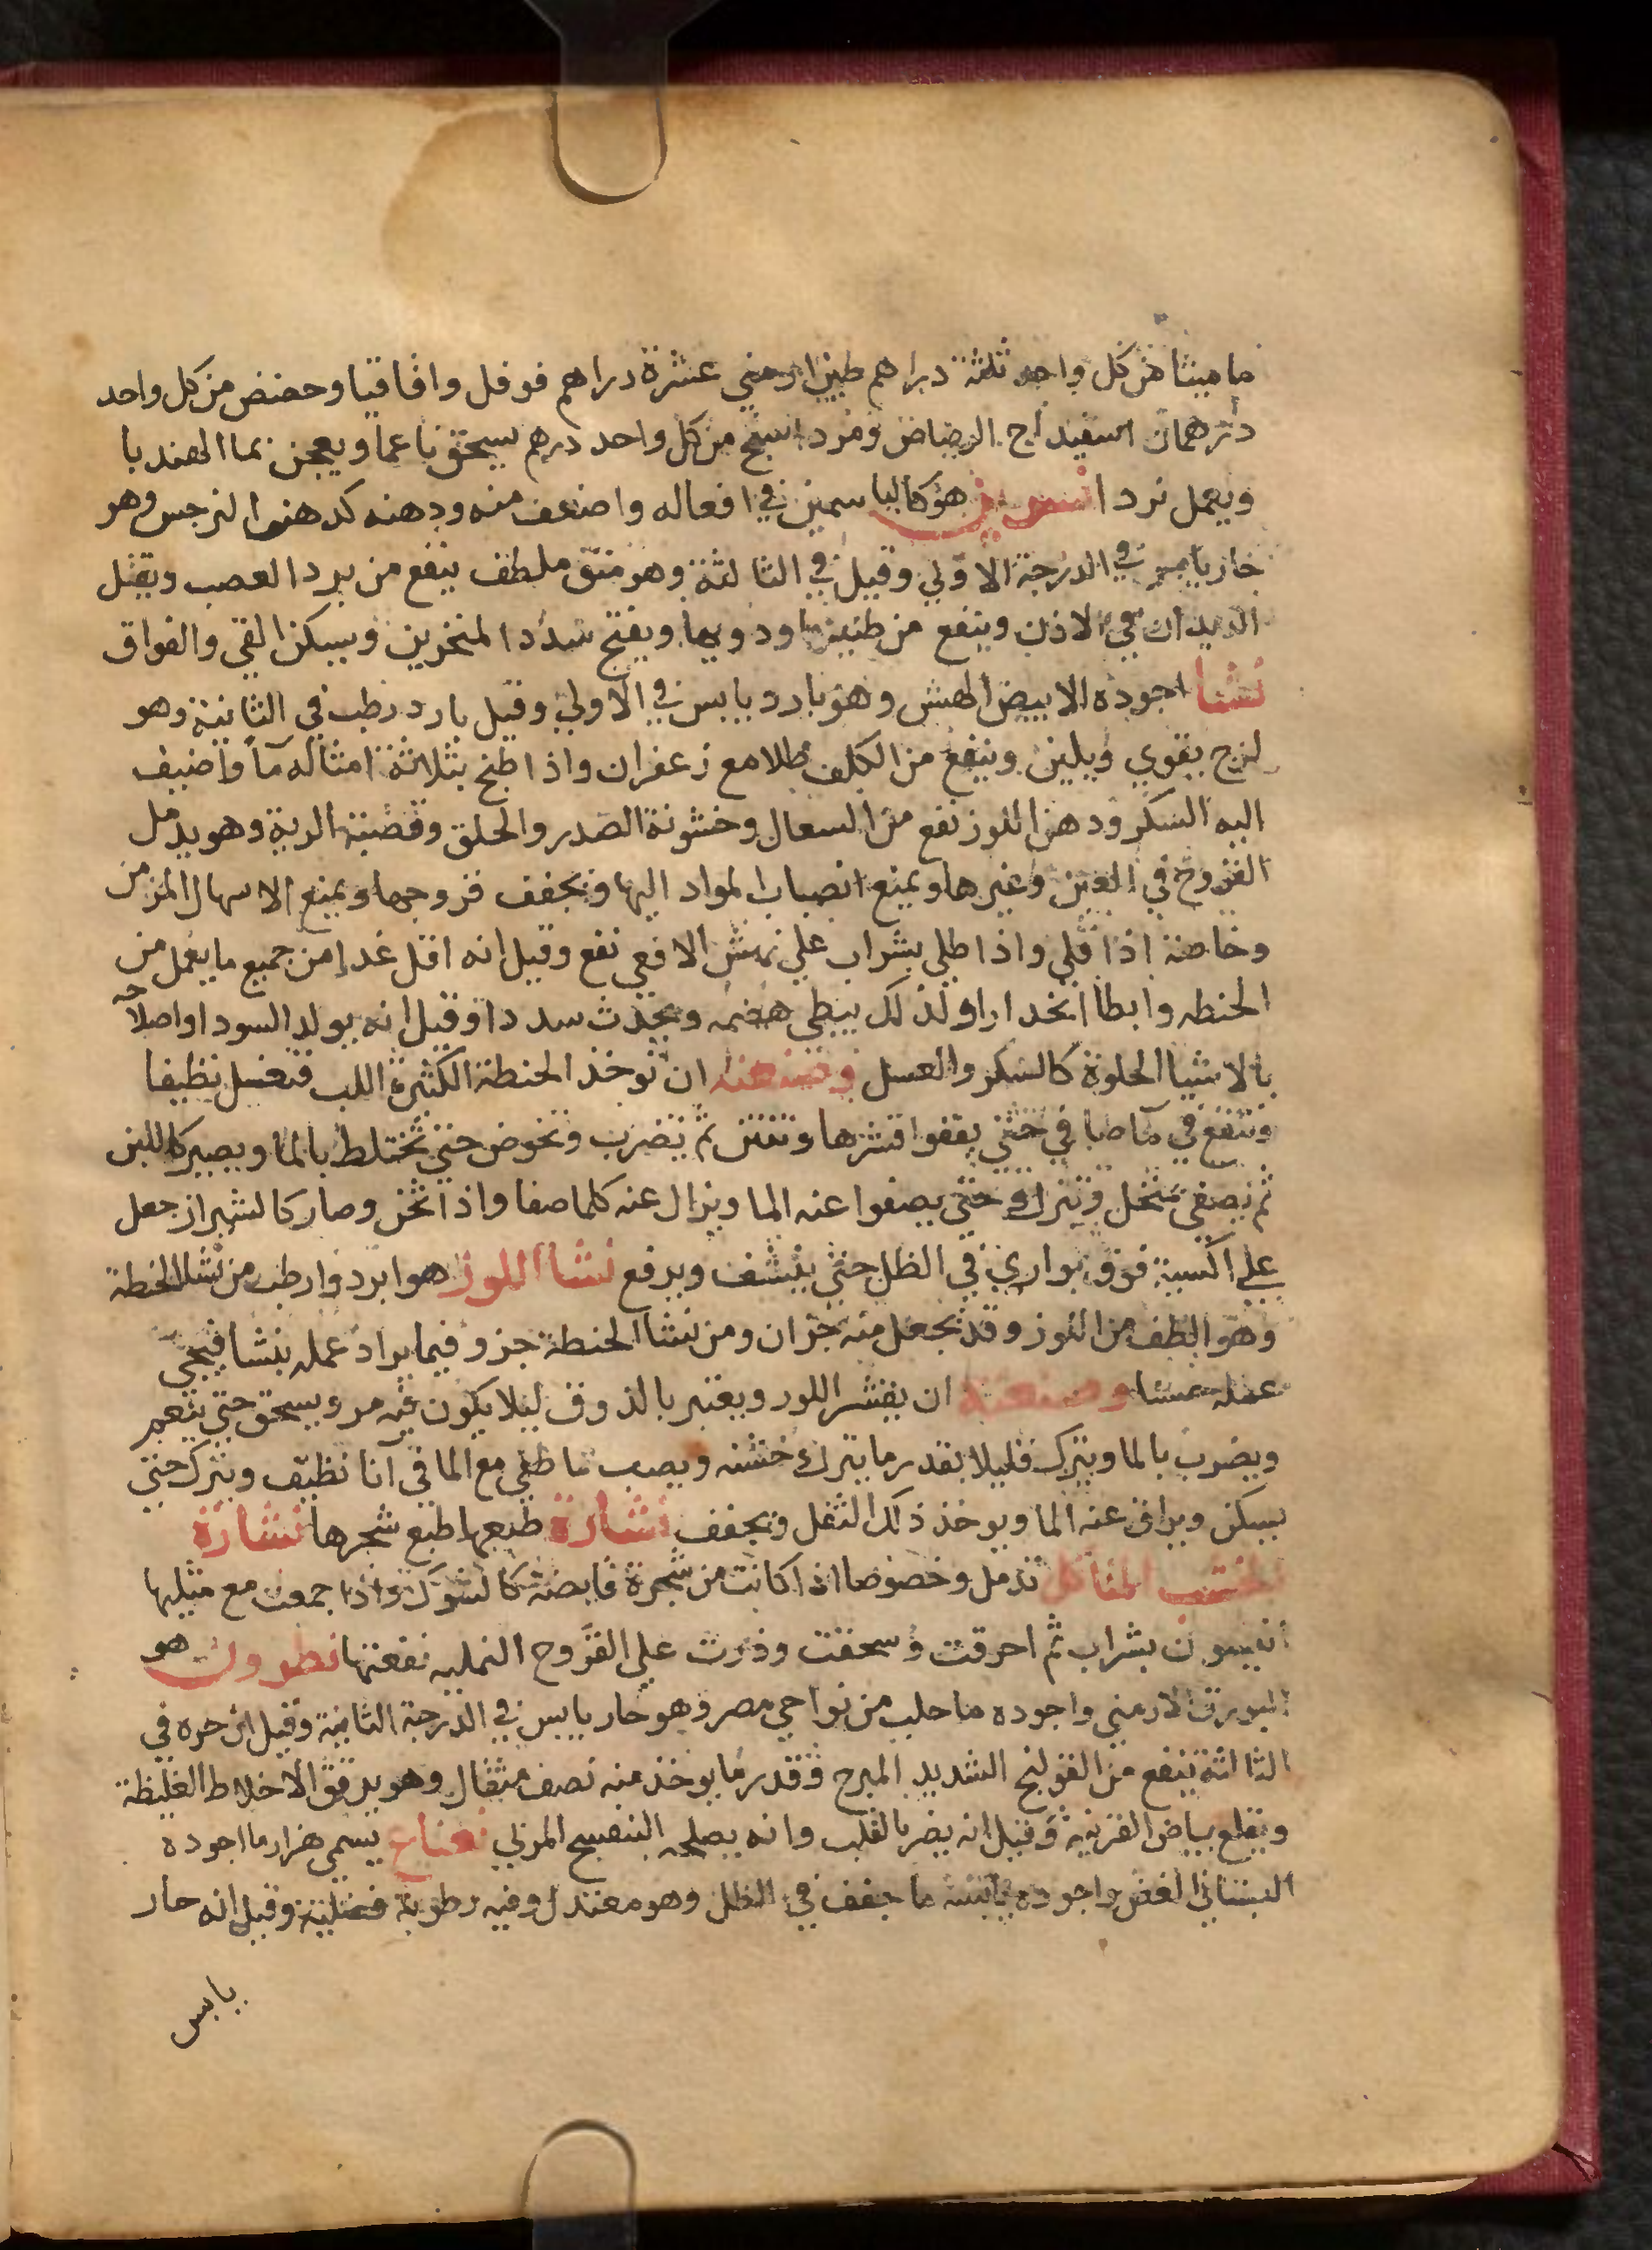 ماميثا من كل واحد ثلثة دراهم طين ارمني عشرة دراهم فوفل واقاقيا وحضض من كل واحد
درهمان اسفيداج الرصاص ومرداسنج من كل واحد درهم يسحق ناعما ويعجن بما الهندبا
ويعمل نردا نسرين هو كالياسمين في افعاله واضعف منه ودهنه كدهن النرجس وهو
حار يابس في الدرجة الاولي وقيل في الثالثة وهو منق ملطف ينفع من برد العصب ويقتل
الديدان في الاذن وينفع من طنينها ودويها ويفتح سدد المنخرين ويسكن القي والفواق
نشا اجوده الابيض الهش وهو بارد يابس في الاولي وقيل بارد رطب في الثانية وهو
لزج يقوي ويلين وينفع من الكلف طلا مع زعفران واذا طبخ بثلاثة امثاله مآ واضيف
اليه السكر ودهن اللوز نفع من السعال وخشونة الصدر والحلق وقصبة الرية وهو يدمل
القروح في العين وغيرها ويمنع انصباب المواد اليها ويجفف قروحها ويمنع الاسهال المزمن
وخاصة اذا قلي واذا طلي بشراب علي نهش الافعي نفع وقيل انه اقل غدا من جميع ما يعمل من
الحنطه وابطا انحدارا ولذلك يبطي هضمه ويحدث سددا وقيل انه يولد السودا واصلاحه
بالاشيا الحلوة كالسكر والعسل وصنعته ان توخذ الحنطة الكثيرة اللب فتغسل نظيفا
وتنقع في مآ صافي حتي يقفوا قشرها وتنتن ثم تضرب وتخوض حتي تختلط بالما ويصير كاللبن
ثم يصفي بمنخل ويترك حتي يصفوا عنه الما ويزال عنه كلما صفا واذا ثخن وصار كالشيراز جعل
علي اكسية فوق بواري في الظل حتي ينشف ويرفع نشا اللوز هو ابرد وارطب من نشا الحنطة
وهو الطف من اللوز وقد يجعل منه جزان ومن نشا الحنطة جز وفيما يراد عمله بنشا فيجي
عمله حسنا وصنعته ان يقشر اللوز ويعتبر بالذوق ليلا يكون فيه مر ويسحق حتي ينعم
ويضرب بالما ويترك قليلا بقدر ما يترك خشنه ويصب ما طفي مع الما في آنا نظيف ويترك حتي
يسكن ويراق عنه الما ويوخذ ذلك الثفل ويجفف نشارة طبعها طبع شجرها نشارة
الخشب المتاكل تدمل وخصوصا اذا كانت من شجرة قابضة كالشوك واذا جمعت مع مثليها
انيسون بشراب ثم احرقت وسحقت وذرت علي القروح النمليه نفعتها نطرون هو
البورق الارمني واجوده ما جلب من نواحي مصر وهو حار يابس في الدرجة الثانية وقيل ان حره في
الثالثة ينفع من القولنج الشديد المبرح وقدر ما يوخذ منه نصف مثقال وهو يرقق الاخلاط الغليظة
ويقلع بياض القرنية وقيل انه يضر بالقلب وانه يصلحه البنفسج المربي نعناع يسمي هزارما اجوده
البستاني الغض واجود يابسه ما جفف في الظل وهو معتدل وفيه رطوبة فضلية وقيل انه حار
يابس